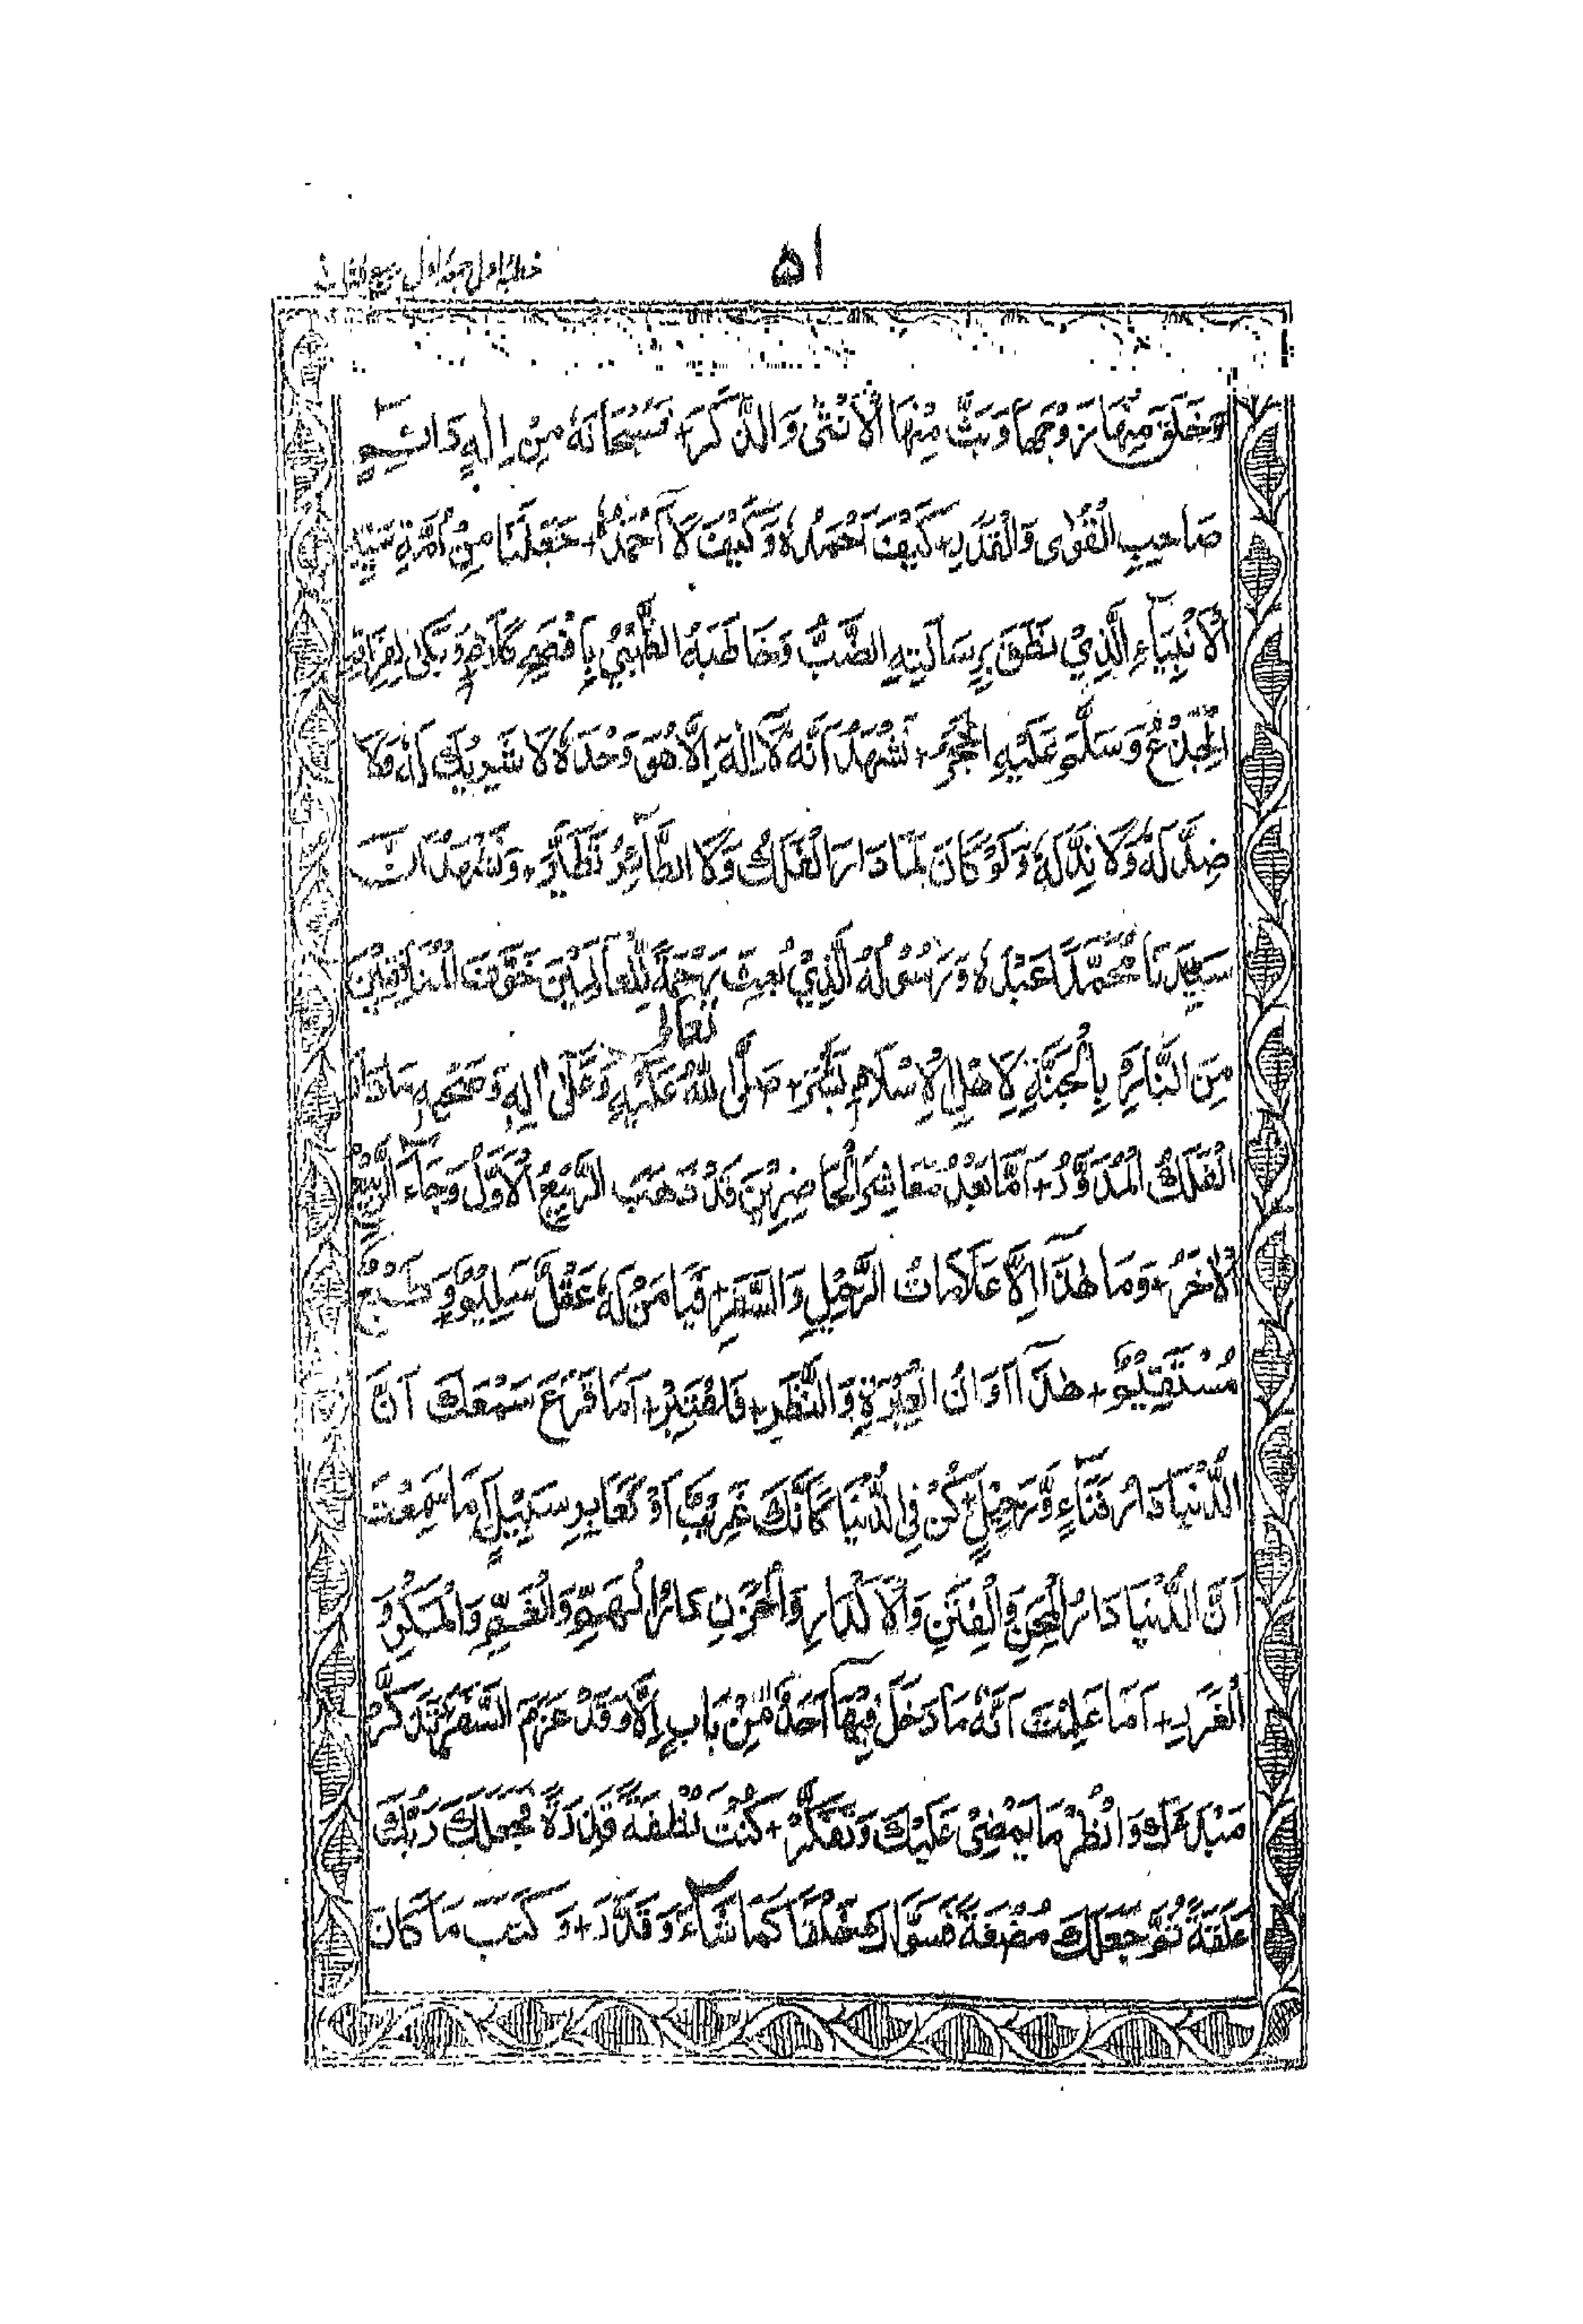 ۵۱
خطبه اول جمعه اول ربیع الثانی
وَخَلَقَ مِنْهَا زَوْجَهَا وَبَثَّ مِنْهَا الْاُنْثٰى وَالذَّكَرَ + نُسُبْحَانَهٗ مِنْ اِلٰهٍ دَائِمٍ
صَاحِبِ الْقُوٰى وَالْقُدَرِ + كَيْفَ اَحْمَدُهٗ وَكَيْفَ لَا اَحْمَدُهٗ + جَعَلَنَا مِنْ اُمَّةِ سَيِّدِ
الْاَنْبِيَآءِ الَّذِيْ نَطَقَ بِرِسَالَتِهِ الضَّبُّ وَخَاطَبَهُ الظَّبْيُ بِاَفْصَحِ كَلَامٍ وَبَكٰى لِفِرَاقِهِ
الْجِذْعُ وَسَلَّمَ عَلَيْهِ الْحَجَرُ + نَشْهَدُ اَنَّهٗ لَا اِلٰهَ اِلَّا هُوَ وَحْدَهٗ لَا شَرِيْكَ لَهٗ وَلَا
ضِدَّ لَهٗ وَلَا نِدَّ لَهٗ وَلَوْ كَانَ لَمَا دَارَ الْفَلَكُ وَلَا الطَّآئِرُ تَطَيَّرَ + وَنَشْهَدُ اَنَّ
سَيِّدَنَا مُحَمَّدًا عَبْدُهٗ وَرَسُوْلُهُ الَّذِيْ بُعِثَ رَحْمَةً لِّلْعَالَمِيْنَ خَوَّفَ الْمُنَافِقِيْنَ
مِنَ النَّارِ بِالْجَنَّةِ لِاَهْلِ الْاِسْلَامِ بَشَّرَ + صَلَّى اللّٰهُ تَعَالٰى عَلَيْهِ وَعَلٰى اٰلِهٖ وَصَحْبِهٖ مَا دَارَ
الْفَلَكُ الْمُدَوَّرُ + اَمَّا بَعْدُ مَعَاشِرَ الْحَاضِرِيْنَ قَدْ ذَهَبَ الرَّبِيْعُ الْاَوَّلُ وَجَآءَ الرَّبِيْعُ
الْاٰخَرُ + وَمَا هٰذَا اِلَّا عَلَامَاتُ الرَّحِيْلِ وَالسَّفَرِ + فَيَا مَنْ لَهٗ عَقْلٌ سَلِيْمٌ وَطَبْعٌ
مُسْتَقِيْمٌ + هٰذَا اَوَانُ الْعِبْرَةِ وَالنَّظَرِ + فَاعْتَبِرْ + اَمَا قَرَعَ سَمْعَكَ اَنَّ
الدُّنْيَا دَارُ فَنَآءٍ وَّرَحِيْلٍ + كُنْ فِى الدُّنْيَا كَاَنَّكَ غَرِيْبٌ اَوْ كَعَابِرِ سَبِيْلٍ اَمَا سَمِعْتَ
اَنَّ الدُّنْيَا دَارُ الْمِحَنِ وَالْفِتَنِ وَالْاَكْدَارِ وَالْحُزْنِ دَارُ الْهَمِّ وَالْغَمِّ وَالْمَكْرِ وَ
الْغَرَرِ + اَمَا عَلِمْتَ اَنَّهٗ مَا دَخَلَ فِيْهَا اَحَدٌ مِّنْ بَابٍ اِلَّا وَقَدْ عَزَمَ السَّفَرَ تَذَكَّرْ
مَبْدَءَكَ وَانْظُرْ مَا يَمْضِىْ عَلَيْكَ وَتَفَكَّرْ + كُنْتَ نُطْفَةً قَذِرَةً فَجَعَلَكَ رَبُّكَ
عَلَقَةً ثُمَّ جَعَلَكَ مُضْغَةً فَسَوَّاكَ خَلْقًا كَمَا شَآءَ وَقَدَّرَ + وَكَتَبَ مَا كَانَ